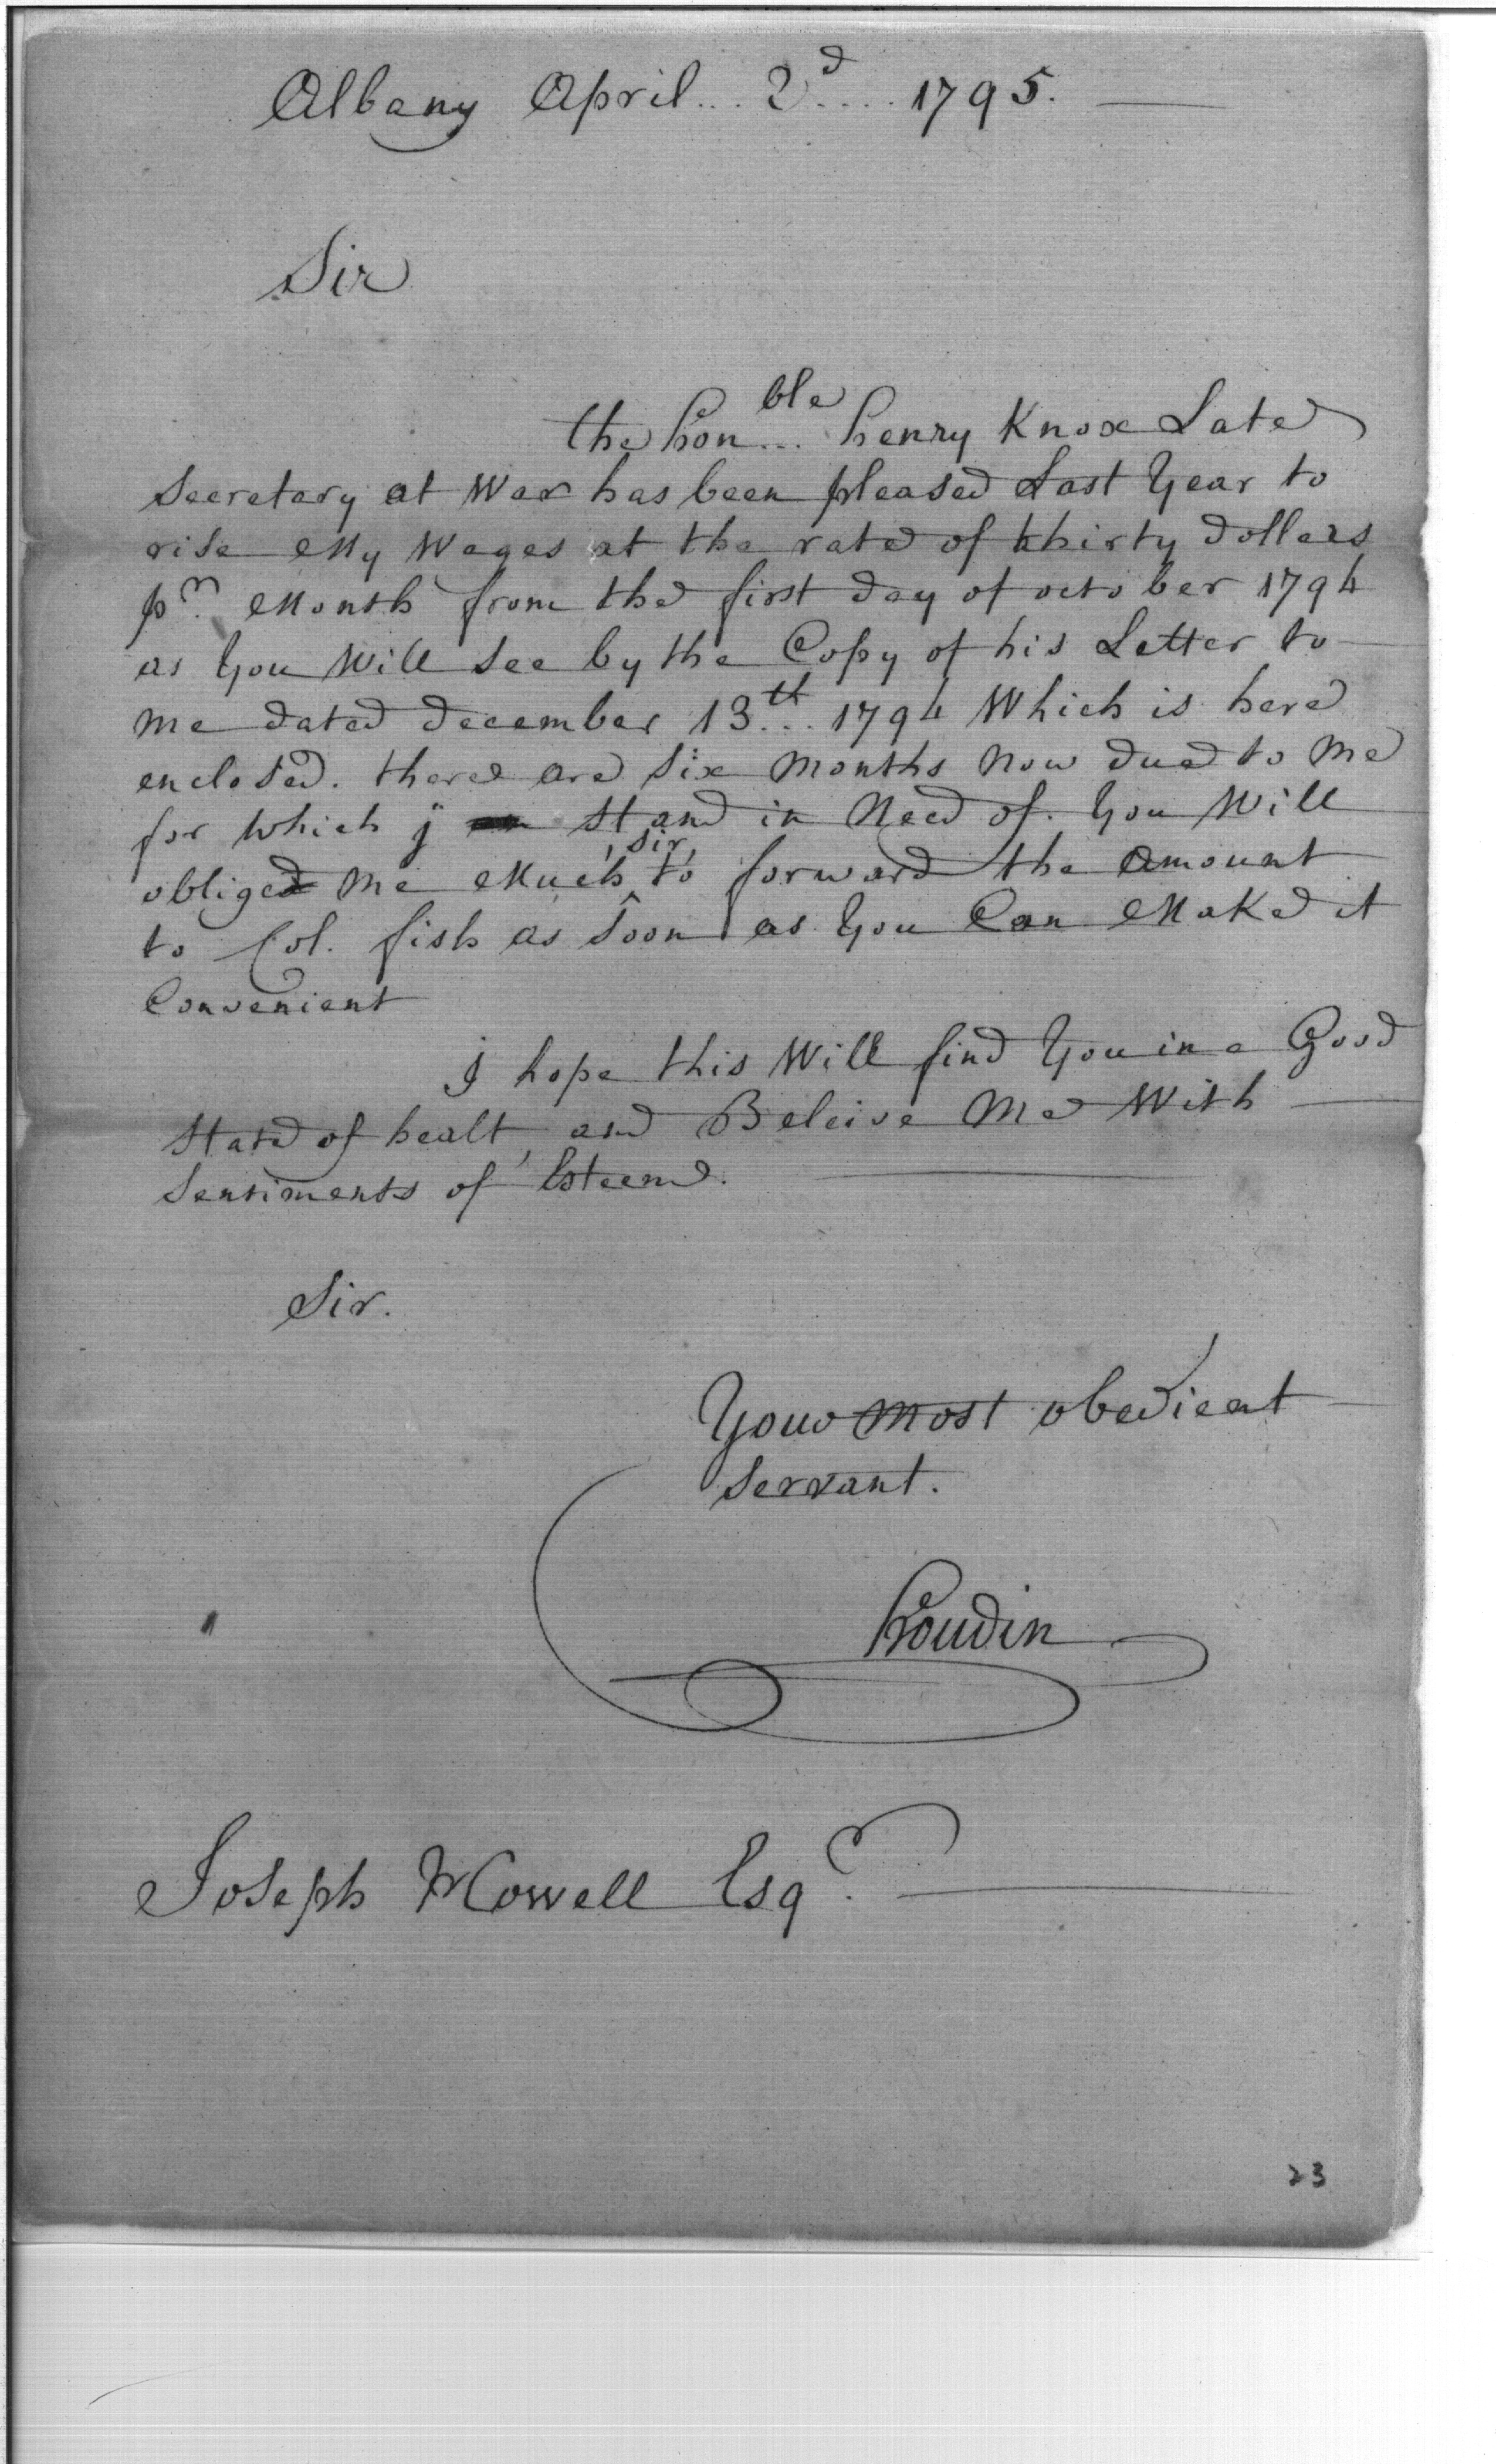 Albany April... 2d.... 1795.
Sir
the hon...ble henry Knox Late
Secretary at War has been pleased Last Year to
rise My Wages at the rate of thirty dollars
pr. Month from the first day of october 1794
as You Will See by the Copy of his Letter to
me dated december 13th... 1794 Which is here
enclosed. there are Six Months Now due to Me
for which j stand in Need of. You Will
obliged Me Much, Sir, to forward the amount
to Col. fish as Soon as You Can Make it
Convenient
I hope this Will find You in a Good
State of healt, and Beleive Me With
Sentiments of Esteem.
Sir.
Your most obedient
Servant.
houdin
Joseph Howell Esqr.
23